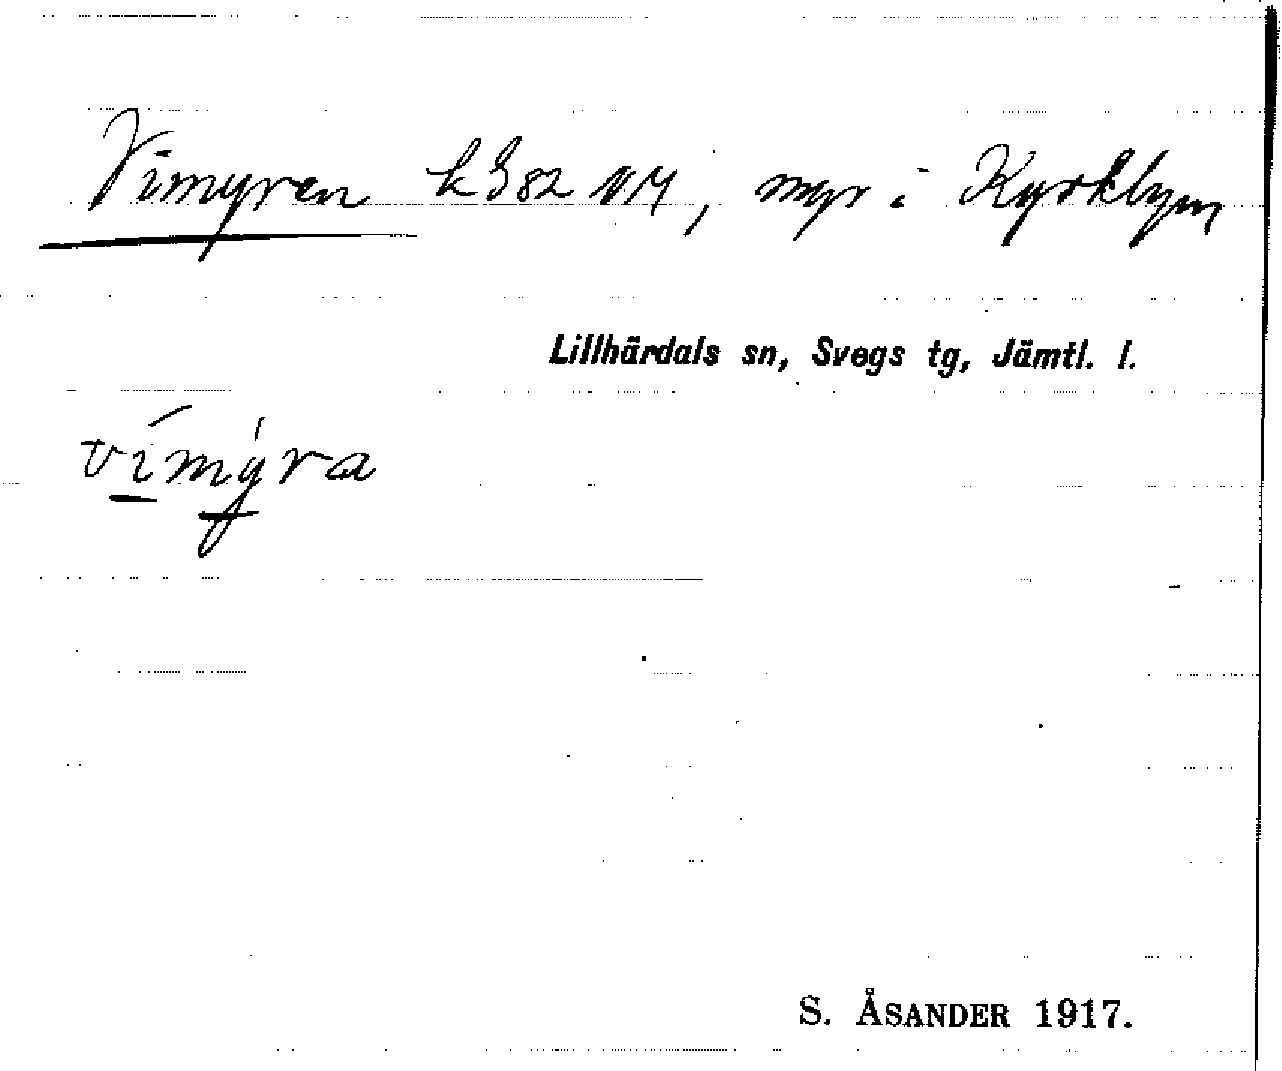 Vimyren k 382 NM, myr i Kyrkbyn
Lillhärdals sn, Svegs tg, Jämtl. l.
vímýra
S. ÅSANDER 1917.